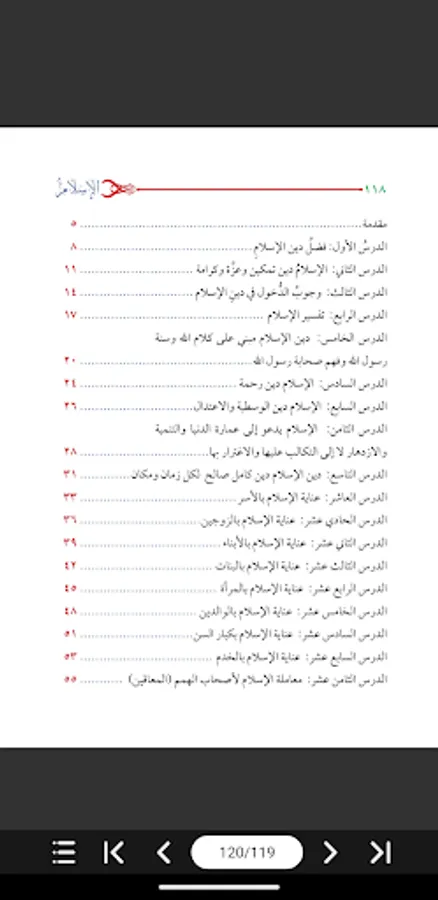 ١١٨ الإسلام
مقدمة ٥
الدرسُ الأول: فضلُ دين الإسلامِ ٨
الدرس الثاني: الإسلامُ دين تمكين وعزَّة وكرامة ١١
الدرس الثالث: وجوبُ الدُّخول في دينِ الإسلام ١٤
الدرس الرابع: تفسير الإسلام ١٧
الدرس الخامس: دين الإسلام مبني على كلام الله وسنة
رسول الله وفهم صحابة رسول الله ٢٠
الدرس السادس: الإسلام دين رحمة ٢٤
الدرس السابع: الإسلام دين الوسطية والاعتدال ٢٦
الدرس الثامن: الإسلام يدعو إلى عمارة الدنيا والتنمية
والازدهار لا إلى التكالب عليها والاغترار بها ٢٨
الدرس التاسع: دين الإسلام دين كامل صالح لكل زمان ومكان ٣١
الدرس العاشر: عناية الإسلام بالأسر ٣٣
الدرس الحادي عشر: عناية الإسلام بالزوجين ٣٦
الدرس الثاني عشر: عناية الإسلام بالأبناء ٣٩
الدرس الثالث عشر: عناية الإسلام بالبنات ٤٢
الدرس الرابع عشر: عناية الإسلام بالمرأة ٤٥
الدرس الخامس عشر: عناية الإسلام بالوالدين ٤٨
الدرس السادس عشر: عناية الإسلام بكبار السن ٥١
الدرس السابع عشر: عناية الإسلام بالخدم ٥٣
الدرس الثامن عشر: معاملة الإسلام لأصحاب الهمم (المعاقين) ٥٥
120/119